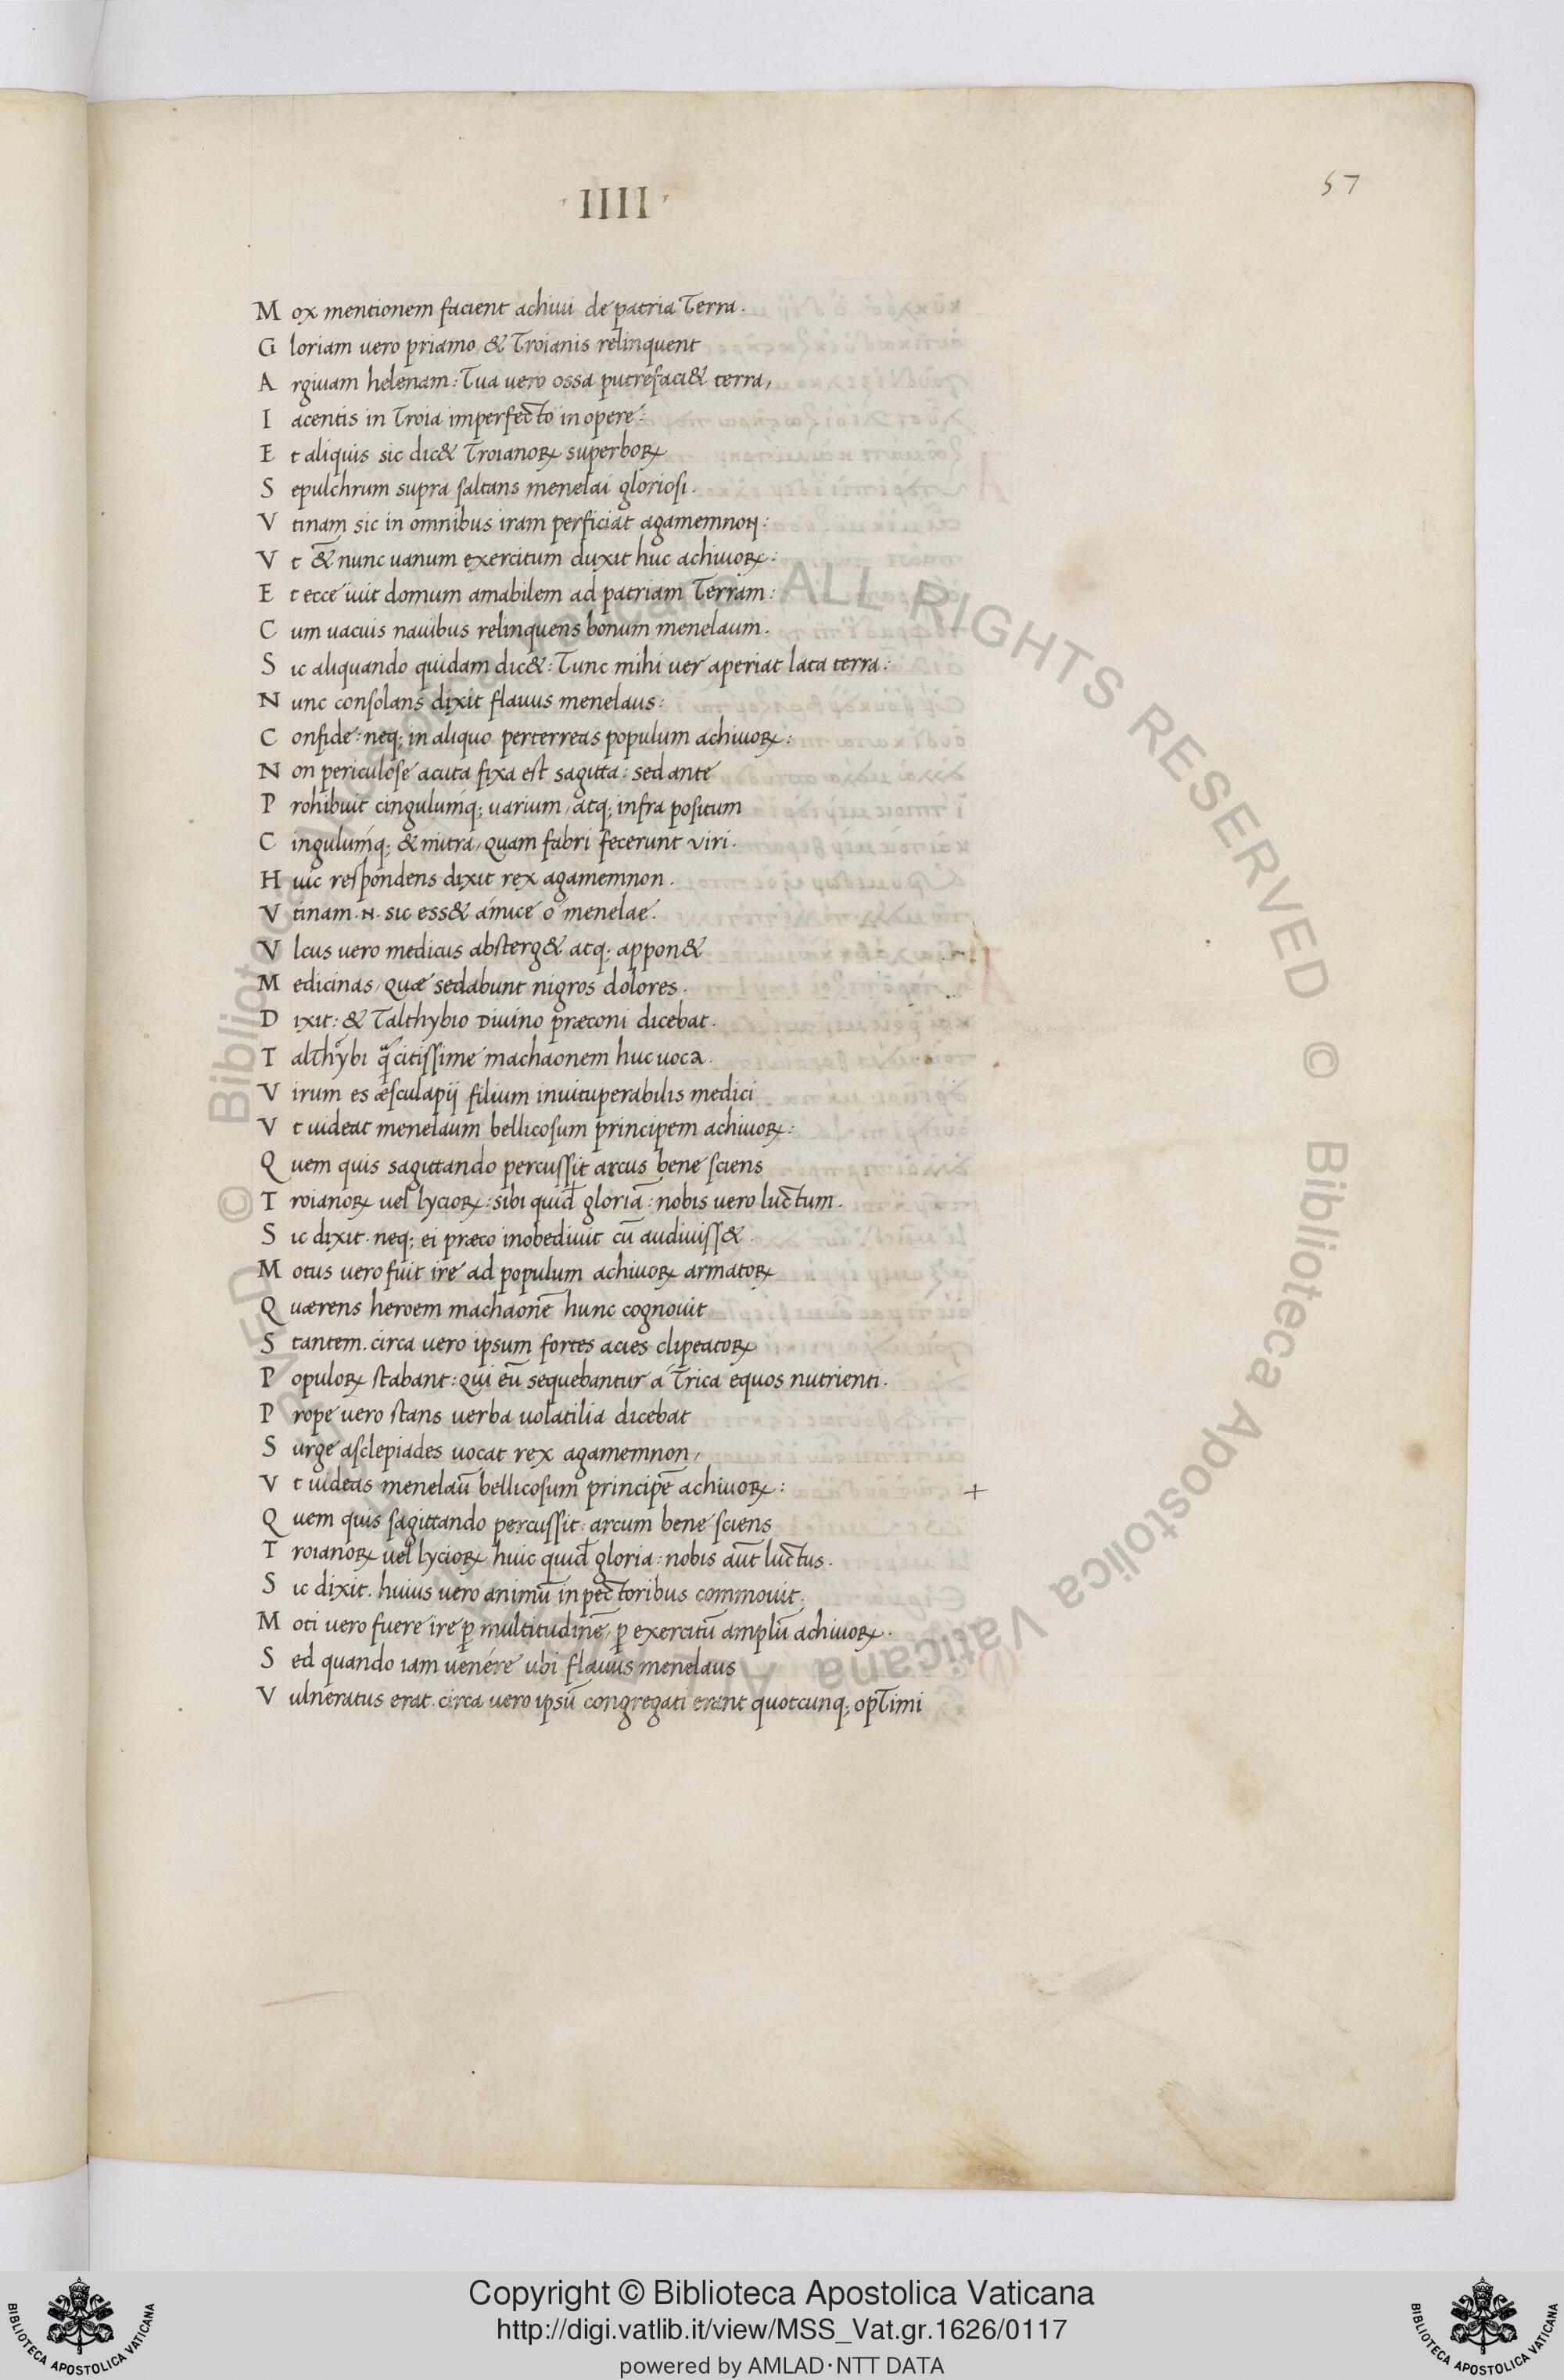 · IIII ·
57
Mox mentionem facient achiui de patria Terra.
Gloriam uero priamo, & Troianis relinquent
Argiuam helenam: Tua uero ossa putrefaci& terra,
Iacentis in Troia imperfecto in opere:
Et aliquis sic dic& Troianoꝝ superboꝝ
Sepulchrum supra saltans menelai gloriosi.
Vtinam sic in omnibus iram perficiat agamemnon:
Vt & nunc uanum exercitum duxit huc achiuoꝝ:
Et ecce iuit domum amabilem ad patriam Terram:
Cum uacuis nauibus relinquens bonum menelaum.
Sic aliquando quidam dic&: Tunc mihi uer aperiat lata terra:
Nunc consolans dixit flauus menelaus:
Confide: neq; in aliquo perterreas populum achiuoꝝ:
Non periculose acuta fixa est sagitta: sed ante
Prohibuit cingulumq; uarium, atq; infra positum
Cingulumq; & mitra, quam fabri fecerunt viri.
Huic respondens dixit rex agamemnon.
Vtinam .N. sic ess& amice o menelae.
Vlcus uero medicus absterg& atq; appon&
Medicinas, quæ sedabunt nigros dolores.
Dixit: & Talthybio Diuino præconi dicebat.
Talthybi q̃ citissime machaonem huc uoca.
Virum es æsculapij filium inuituperabilis medici
Vt uideat menelaum bellicosum principem achiuoꝝ:
Quem quis sagittando percussit arcus bene sciens
Troianoꝝ uel lycioꝝ: sibi quid̄ gloriā: nobis uero luctum.
Sic dixit. neq; ei præco inobediuit cū audiuiss&.
Motus uero fuit ire ad populum achiuoꝝ armatoꝝ
Quærens heroem machaonē hunc cognouit
Stantem. circa uero ipsum fortes acies clipeatoꝝ
Populoꝝ stabant: qui eū sequebantur a Trica equos nutrienti.
Prope uero stans uerba uolatilia dicebat
Surge asclepiades uocat rex agamemnon,
Vt uideas menelaū bellicosum principē achiuoꝝ: +
Quem quis sagittando percussit: arcum bene sciens
Troianoꝝ uel lycioꝝ huic quid̄ gloria: nobis aūt luctus.
Sic dixit. huius uero animū in pectoribus commouit.
Moti uero fuere ire ꝑ multitudinē, ꝑ exercitū amplū achiuoꝝ.
Sed quando iam uenere ubi flauus menelaus
Vulneratus erat. circa uero ipsū congregati erant quotcunq; opTimi
© Biblioteca Apostolica Vaticana ALL RIGHTS RESERVED © Biblioteca Apostolica Vaticana ALL RIGHTS RESERVED
Copyright © Biblioteca Apostolica Vaticana
http://digi.vatlib.it/view/MSS_Vat.gr.1626/0117
powered by AMLAD·NTT DATA
BIBLIOTECA APOSTOLICA VATICANA
BIBLIOTECA APOSTOLICA VATICANA